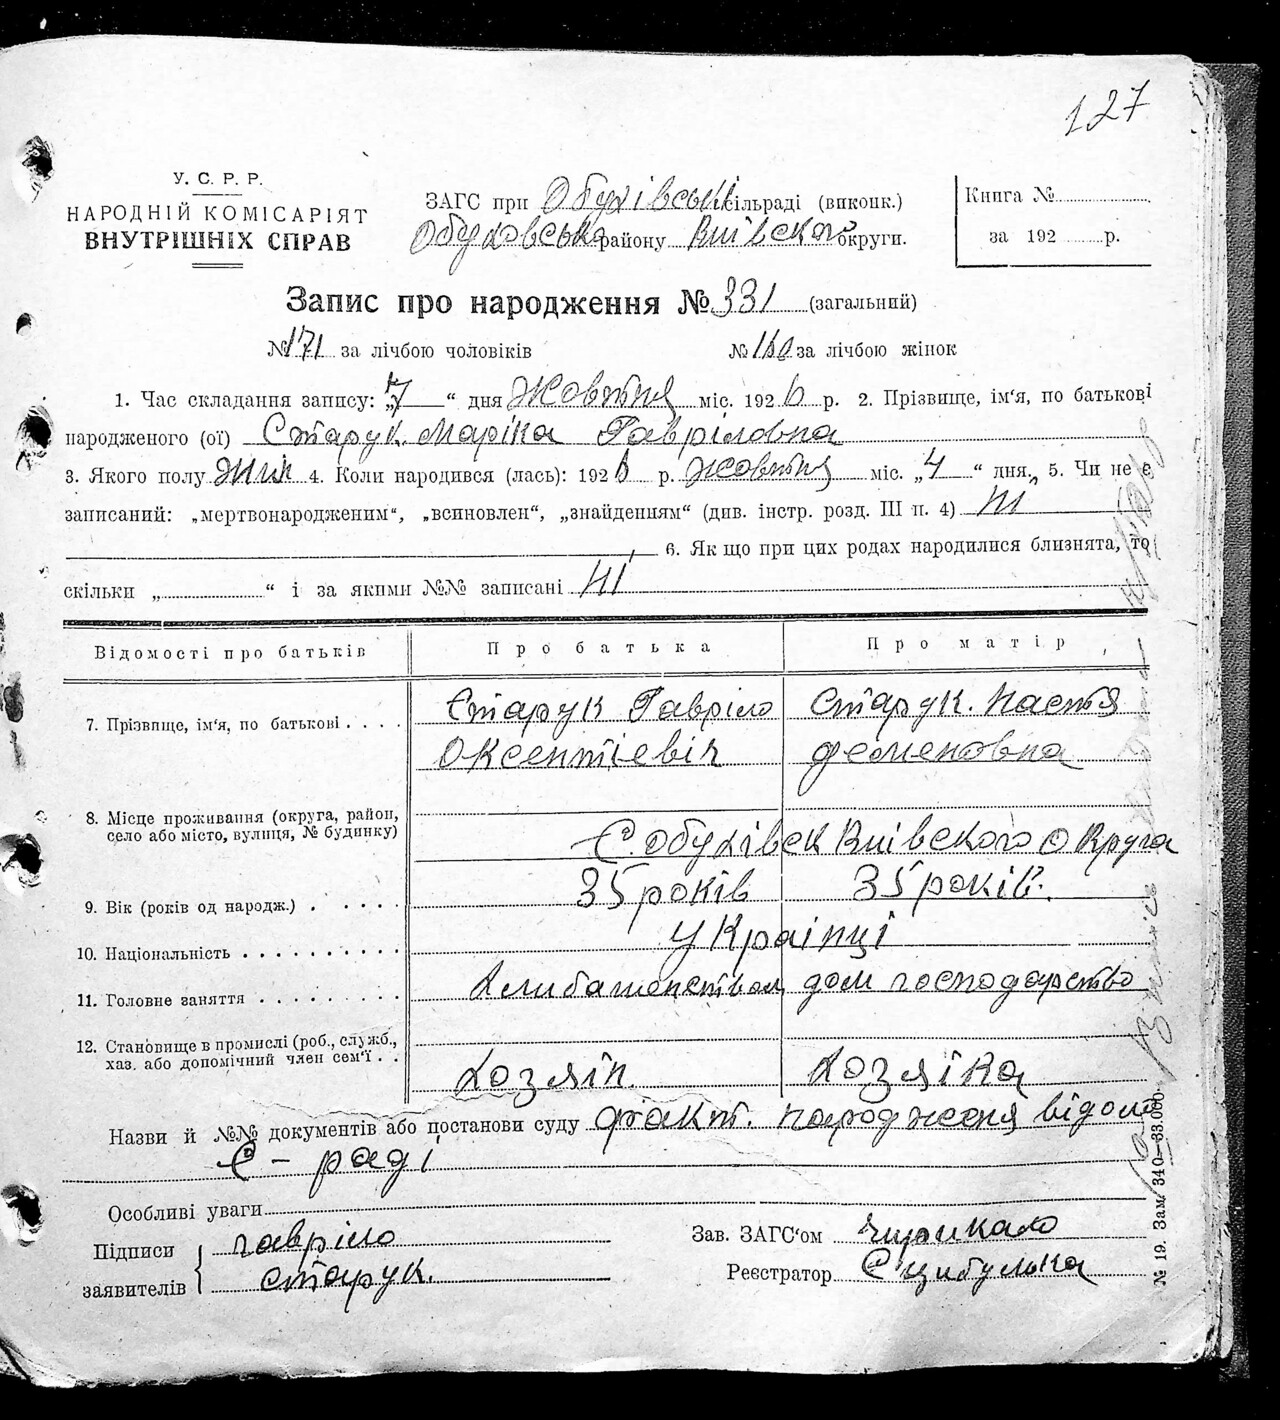 127
У. С. Р. Р.
НАРОДНІЙ КОМІСАРІЯТ
ВНУТРІШНІХ СПРАВ
ЗАГС при Обухівські сільраді (виконк.)
Обуховська району Київского округи.
Книга №
за 192 р.
Запис про народження № 331 (загальний)
№ 171 за лічбою чоловіків № 160 за лічбою жінок
1. Час складання запису: „7“ дня Жовтня міс. 1926 р. 2. Прізвище, ім'я, по батькові
народженого (ої) Старук Маріка Гавріловна
3. Якого полу жін 4. Коли народився (лась): 1926 р. жовтня міс. „4“ дня, 5. Чи не є
записаний: „мертвонародженим“, „всиновлен“, „знайденням“ (див. інстр. розд. III п. 4) Ні
6. Як що при цих родах народилися близнята, то
скільки „ “ і за якими №№ записані Ні
Відомості про батьків Про батька Про матір
7. Прізвище, ім'я, по батькові Старук Гавріло Старук. Настя
Оксентіевіч Феменовна
8. Місце проживання (округа, район,
село або місто, вулиця, № будинку)
С. Обухівек Київского Округа
9. Вік (років од народж.) 35 років 35 років.
10. Національність Українці
11. Головне заняття Хлибапенством дом господарство
12. Становище в промислі (роб., служб.,
хаз. або допомічний член сем'ї
Хозяін. Хозяіка
Назви й №№ документів або постанови суду факт. народженя відомо
С - раді
Особливі уваги
Підписи заявителів Гавріло
Старук.
Зав. ЗАГС'ом Чирикало
Реєстратор С Цибулька
№ 19. Зам. 340—33.000.